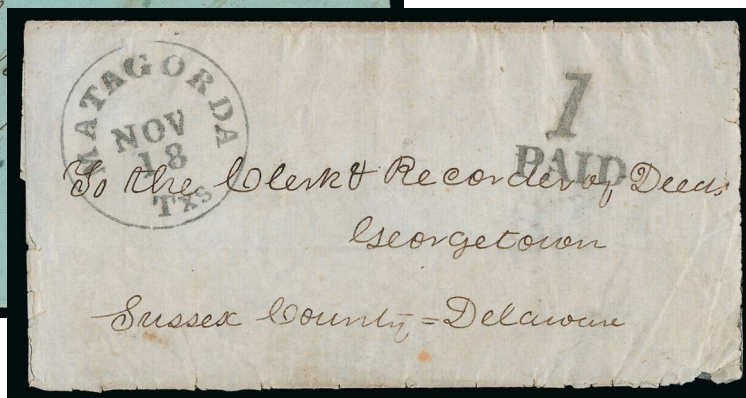 MATAGORDA
NOV
18
Txs
1
PAID
To the Clerk & Recorder of Deeds
Georgetown
Sussex County = Delaware